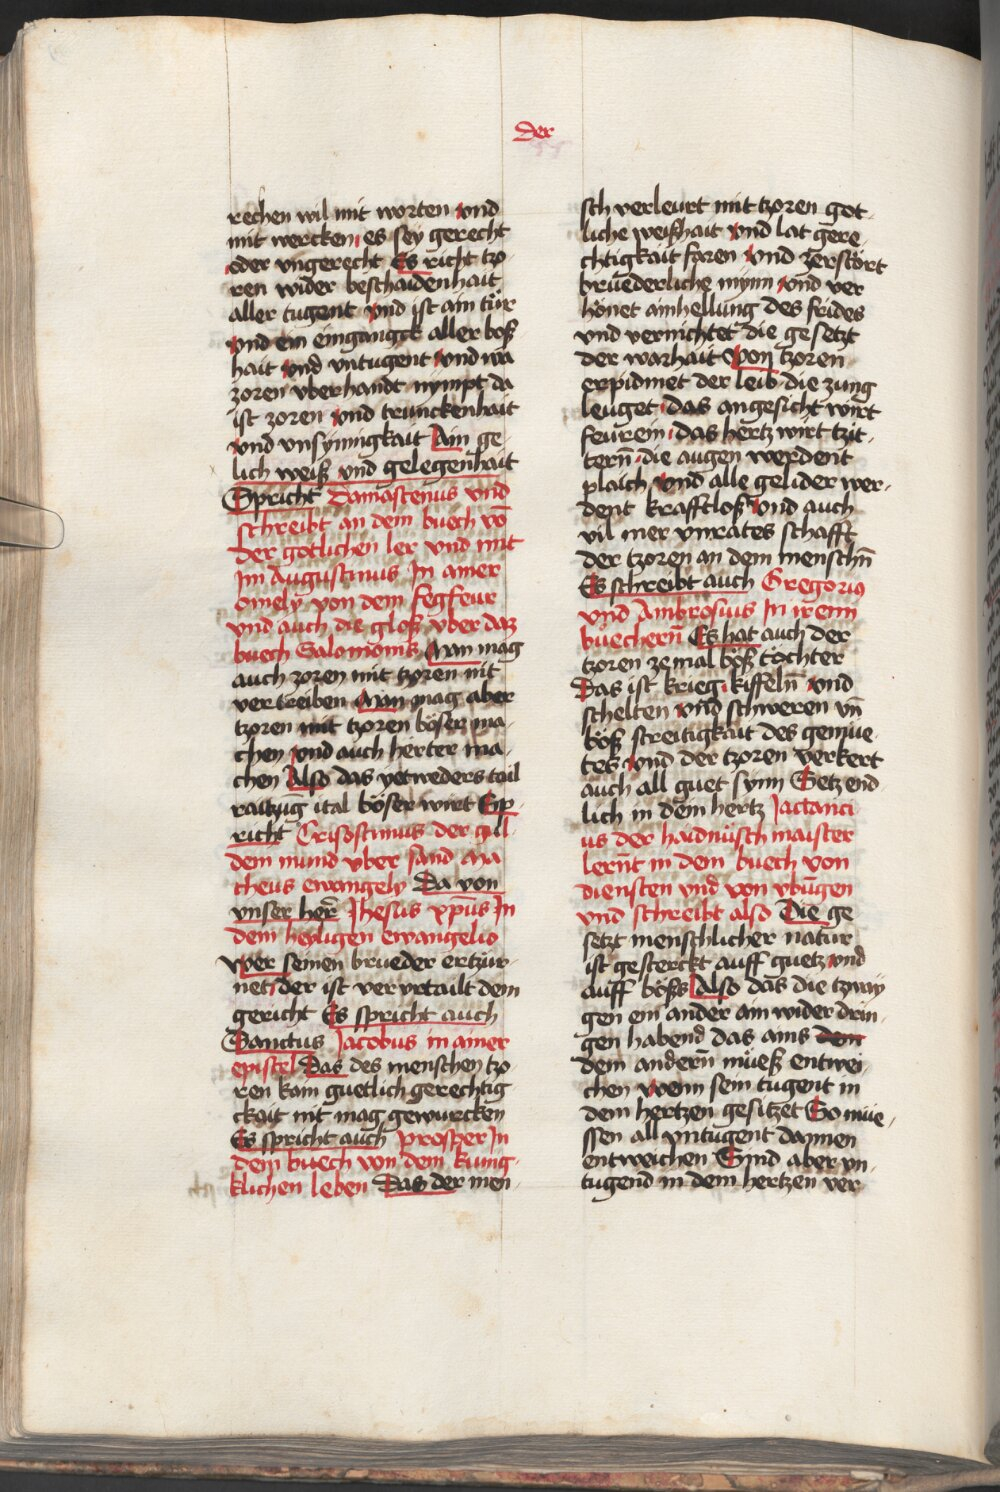 der
rechen wil mit worten vnd
mit wercken es sey gerecht
oder vngerecht Es richt tzo
ren wider beschaidenhait
aller tugent vnd ist ain tür
vnd ein eingangck aller boß
hait vnd vntugent vnd wa
zoren vberhandt nympt da
ist zoren vnd trunckenhait
vnd vnsynnigkait Ain ge
lich weiß vnd gelegenhait
Spricht Damascenus vnd
schreibt an dem buech vō
der gotlichen ler vnd mit
Im Augustinus In ainer
omely von dem fegfeur
vnd auch die gloß vber daz
buech Salomonis Man mag
auch zoren mit tzoren nit
vertreiben Man mag aber
tzoren mit tzoren böser ma-
chen vnd auch herter ma-
chen Also das yetweders tail
raitzūg ital böser wirt Sp-
richt Crisostimus der gul-
dem mund vber sand Ma
theus ewangely Da von
vnser her̄ Jhesus xp̄us In
dem heyligen ewangelio
Wer seinen brueder ertzür-
net der ist verurtailt dem
gericht Es spricht auch
Sanctus Jacobus in ainer
epistel Das des menschen tzo
ren kain guetlich gerechtig
ckait nit mag gewurcken
Es spricht auch prosper In
dem buech von dem kunig-
klichen leben Das der men-
sch verleurt mit tzoren got-
liche weißhait vnd lat gere-
chtigkait faren vnd zerstört
bruederliche mynn vnd ver
hönet ainhellung des frides
vnd vernichtet die gesetzt
der warhait Von tzoren
erpidmet der leib die zung
leuget das angesicht wirt
feurein das hertz wirt tzit-
tern̄ die augen werdent
plaich vnd alle gelider wer-
dent krafftloß vnd auch
vil mer vnrates schafft
der tzoren an dem menschn̄
Es schreibt auch Gregorius
vnd Ambrosius In irenn
büechern̄ Es hat auch der
tzoren zemal böß töchter
Das ist krieg kiffeln̄ vnd
schelten vnd schweren vn̄
böß streitigkait des gemüe-
tes vnd der tzoren verkert
auch all guet synn Setz end
lich in dem hertz Jactanci
us der haidnüsch maister
lernt in dem buech von
diensten vnd von vbūgen
vnd schreibt also Die ge
setzt menschlicher natur
ist gesterckt auff guetz vnd
auff bößs Also das die tzway
gen ein ander ain wider drin-
gen habend das ains den
dem andern̄ müeß entwei-
chen wenn sein tugent in
dem hertzen gesitzet So müe-
ssen all vntugent dannen
entweichen Sind aber vn-
tugend in dem hertzen ver